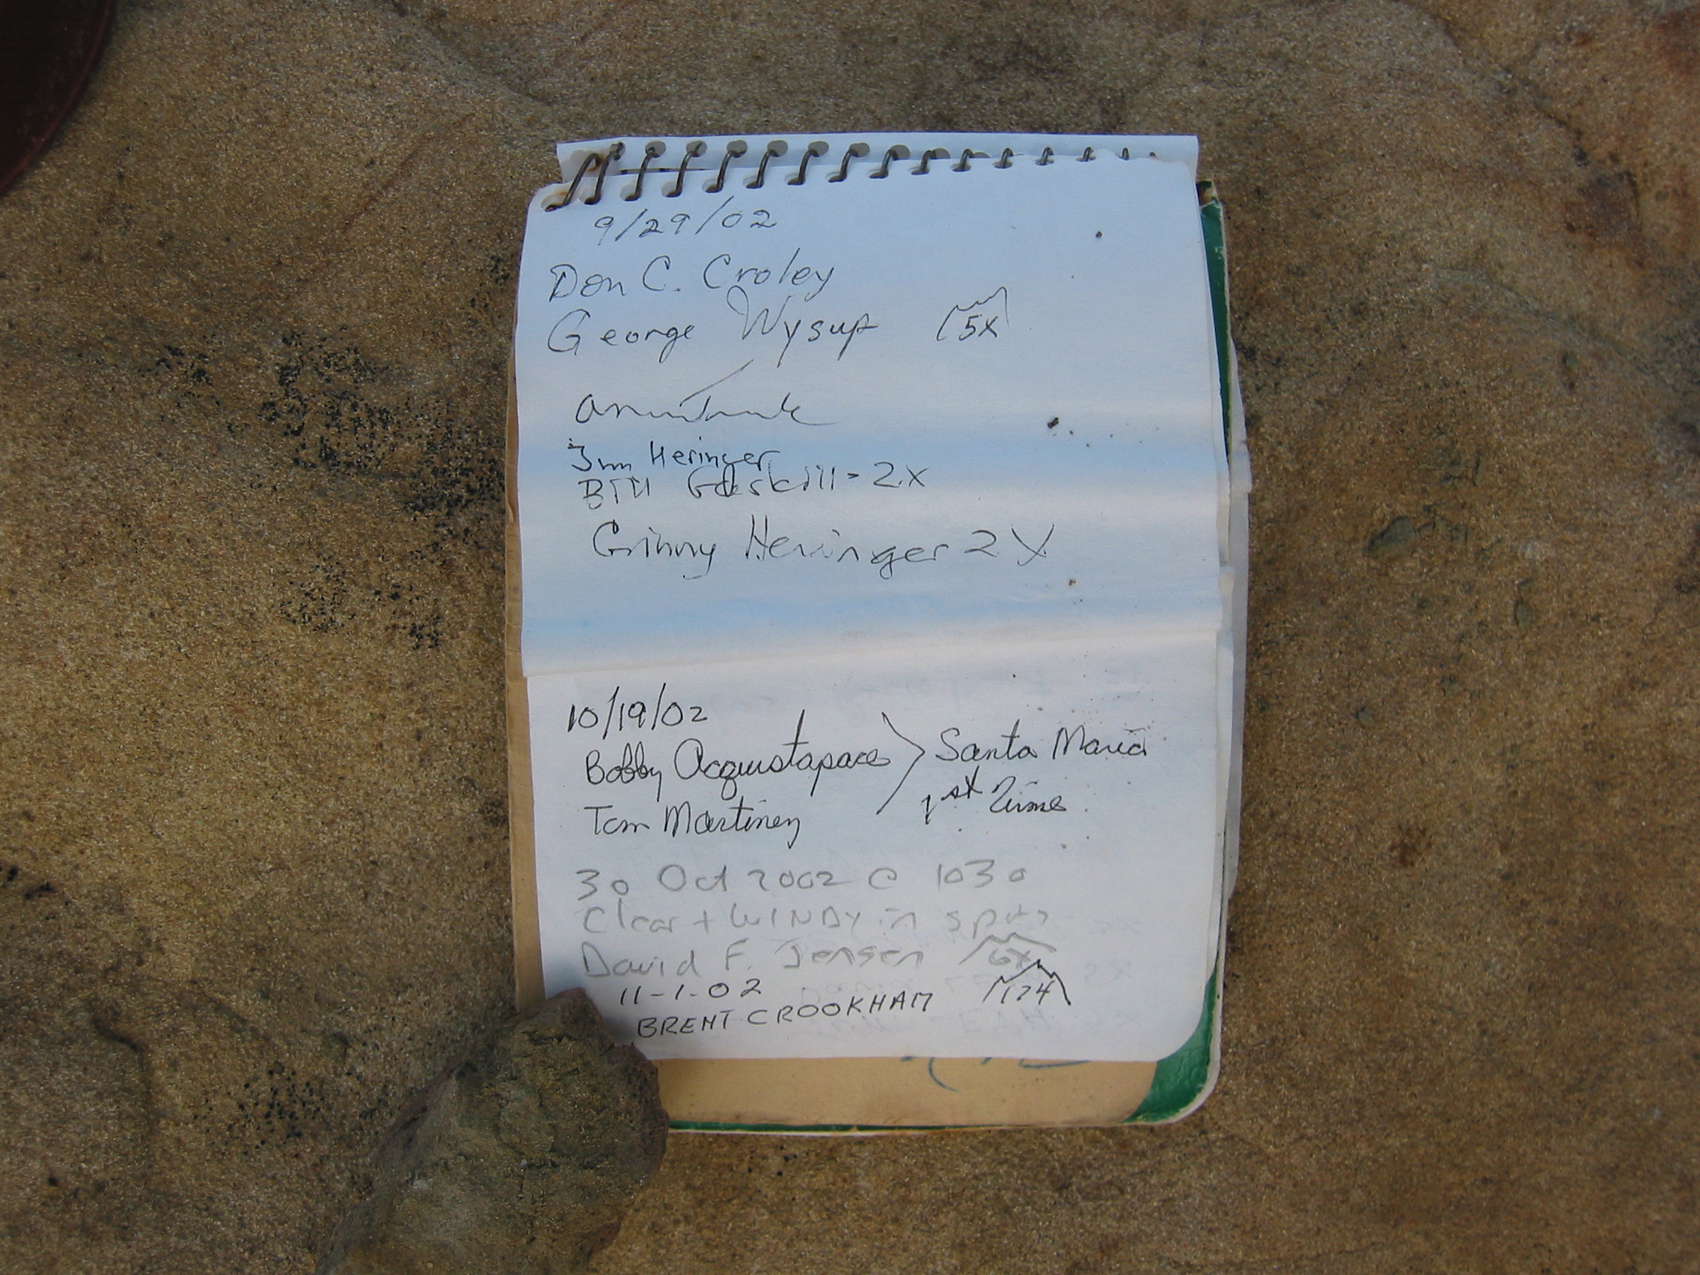 9/29/02
Don C. Croley
George Wysup 5X
Jim Heringer
Bill Gaskill - 2X
Ginny Heringer 2X
10/19/02
Bobby Acquistapace > Santa Maria
Tom Martinez 1st Time
30 Oct 2002 @ 1030
Clear + WINDY in spots
David F. Jensen 6X
11-1-02
BRENT CROOKHAM 174